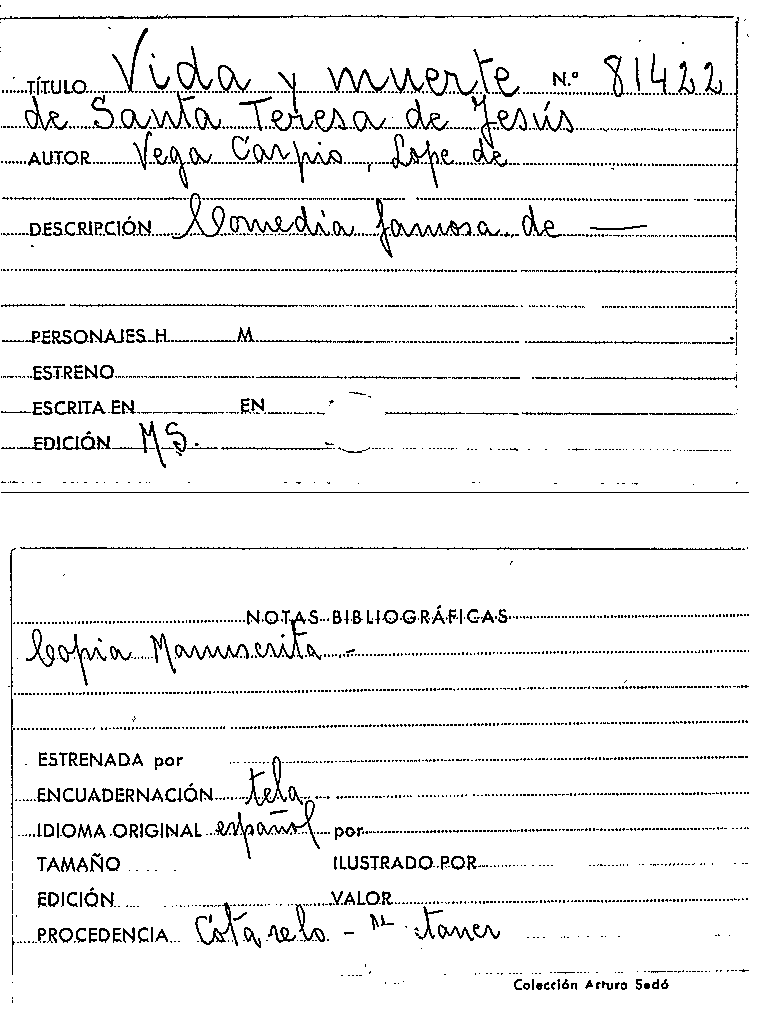 TÍTULO Vida y muerte N.º 81422
de Santa Teresa de Jesús
AUTOR Vega Carpio, Lope de
DESCRIPCIÓN Comedia famosa de —
PERSONAJES H M
ESTRENO
ESCRITA EN EN
EDICIÓN MS.
NOTAS BIBLIOGRÁFICAS
Copia Manuscrita -
ESTRENADA por
ENCUADERNACIÓN tela
IDIOMA ORIGINAL español por
TAMAÑO ILUSTRADO POR
EDICIÓN VALOR
PROCEDENCIA Cotarelo -
Colección Arturo Sedó